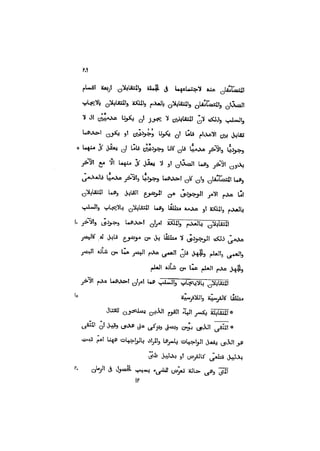 ٢٠٦
المتضائفان منه لاجتماعهما فى الجملة والمتقابلان اربعة اقسام
الضدّان والمتضائفان والمتقابلان بالعدم والملكة والمتقابلان بالايجاب
والسلب وذلك لانّ المتقابلين لا يجوز ان يكونا عدميّين اذ لا
تقابل بين الاعدام فامّا ان يكونا وُجوديّين او يكون احدهما
وجوديّا والآخر عدميّا فان كانا وجوديّين فامّا ان يعقل كلّ منهما ٥
بدون الآخر وهما الضدّان او لا يعقل كلّ منهما الّا مع الآخر
وهما المتضائفان وان كان احدهما وجوديّا والآخر عدميّا فالعدمىّ
امّا عدم الامر الوجودىّ عن الموضوع القابل وهما المتقابلان
بالعدم والملكة او عدمه مطلقا وهما المتقابلان بالايجاب والسلب
المتقابلان بالعدم والملكة امران احدهما وجودىّ والآخر ١٠
عدمىّ ذلك الوجودىّ لا مطلقا بل من موضوع قابل له كالبصر
والعمى والعلم والجهل فانّ العمى عدم البصر عمّا من شأنه البصر
والجهل عدم العلم عمّا من شأنه العلم
المتقابلان بالايجاب والسلب هما امران احدهما عدم الآخر
مطلقا كالفرسيّة واللافرسيّة ١٥
* المقاتلة بكسر التاء القوم الذين يصلحون للقتال
* المتّقى الذى يؤمن ويصلى ويزكى على هدى وقيل انّ المتّقى
هو الذى يفعل الواجبات باسرها والمراد بالواجبات ههنا اعمّ ثبت
بدليل قطعىّ كالفرض او بدليل ظنّىّ
المتى وهى حالة تعرض للشىء بسبب الحصول فى الزمان ٢٠